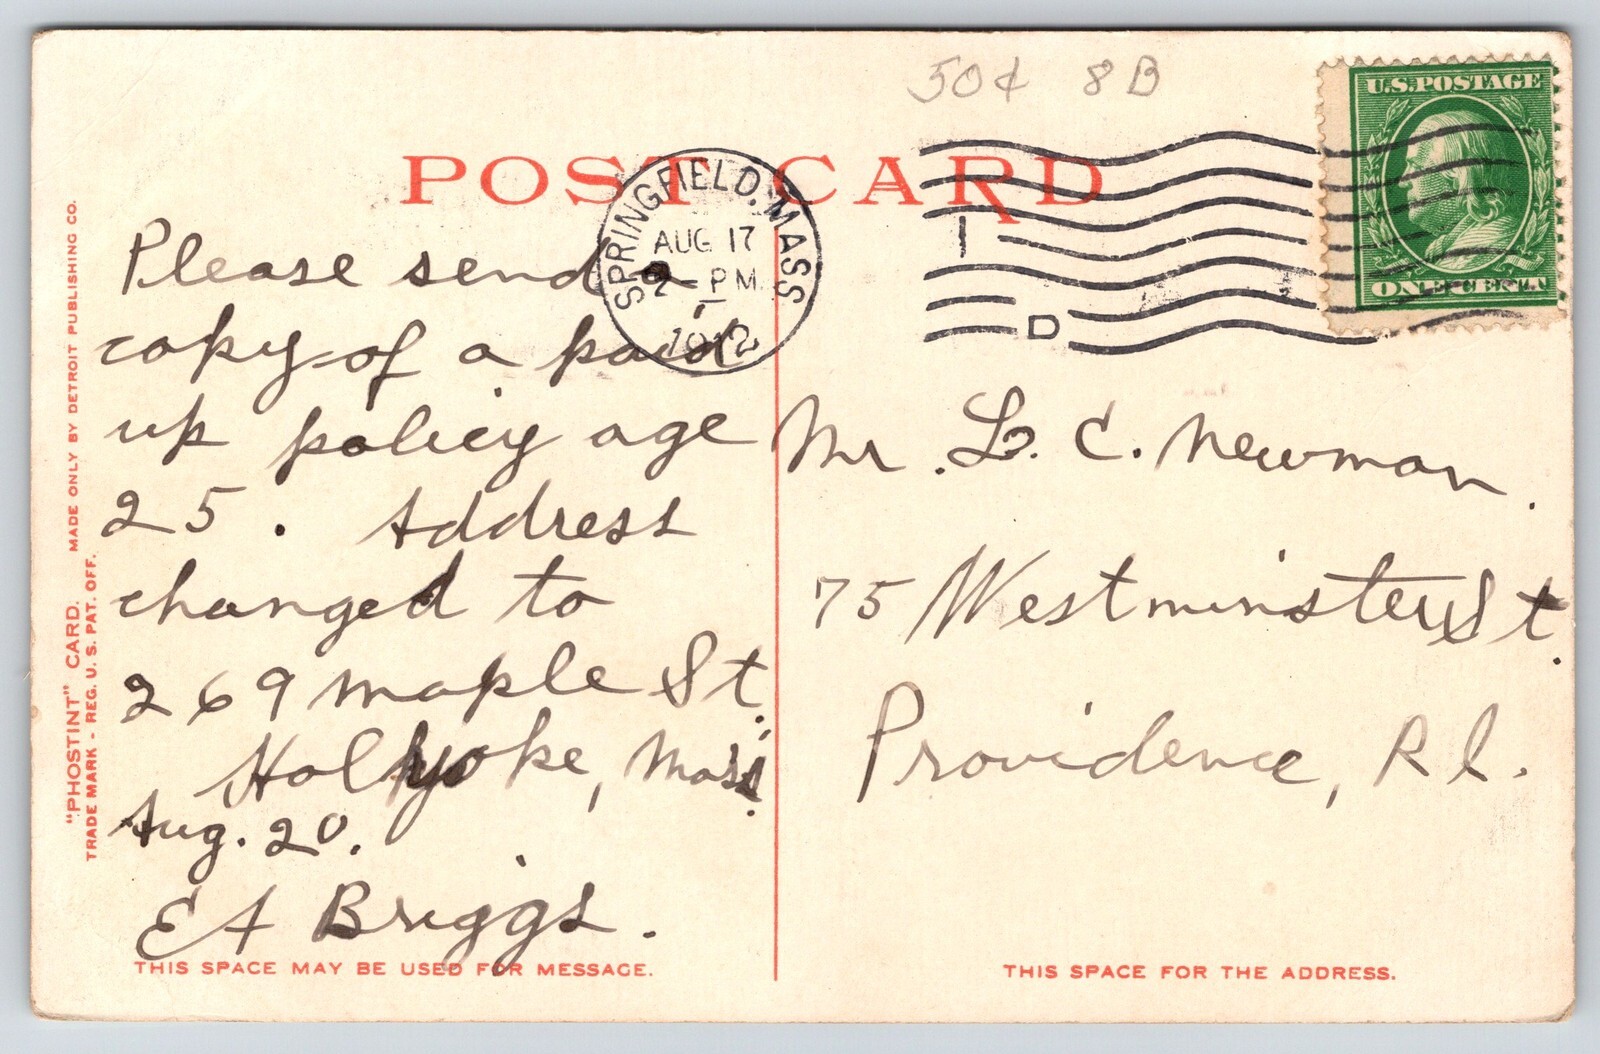 50¢ 8B
U.S. POSTAGE
ONE CENT
POST CARD
SPRINGFIELD, MASS
AUG 17
2 - PM
1912
I
D
Please send a
copy of a paid
up policy age
25. Address
changed to
269 Maple St.
Holyoke, Mass.
Aug. 20.
E A Briggs.
Mr. L. C. Newman.
75 Westminster St.
Providence, R I.
"PHOSTINT" CARD. MADE ONLY BY DETROIT PUBLISHING CO.
TRADE MARK - REG. U. S. PAT. OFF.
THIS SPACE MAY BE USED FOR MESSAGE.
THIS SPACE FOR THE ADDRESS.